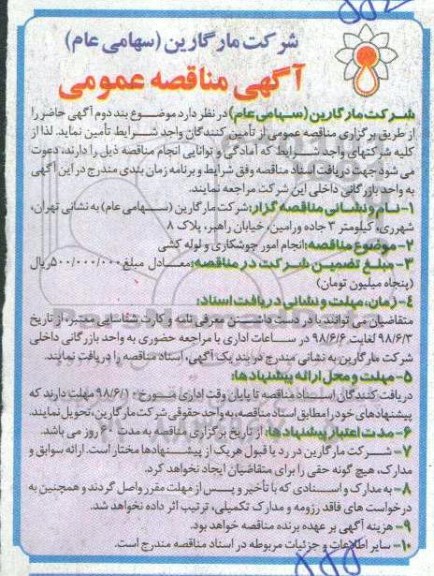 شرکت مارگارین (سهامی عام)
آگهی مناقصه عمومی
شرکت مارگارین (سهامی عام) در نظر دارد موضوع بند دوم آگهی حاضر را
از طریق برگزاری مناقصه عمومی از تأمین کنندگان واجد شرایط تأمین نماید. لذا از
کلیه شرکتهای واجد شرایط که آمادگی و توانایی انجام مناقصه ذیل را دارند، دعوت
می شود جهت دریافت اسناد مناقصه وفق شرایط و برنامه زمان بندی مندرج در این آگهی
به واحد بازرگانی داخلی این شرکت مراجعه نمایند.
۱- نام و نشانی مناقصه گزار: شرکت مارگارین (سهامی عام) به نشانی تهران،
شهرری، کیلومتر ۳ جاده ورامین، خیابان راهبر، پلاک ۸
۲- موضوع مناقصه: انجام امور جوشکاری و لوله کشی
۳- مبلغ تضمین شرکت در مناقصه: معادل مبلغ ۵۰۰/۰۰۰/۰۰۰ ریال
(پنجاه میلیون تومان)
۴- زمان، مهلت و نشانی دریافت اسناد:
متقاضیان می توانند با در دست داشتن معرفی نامه و کارت شناسایی معتبر، از تاریخ
۹۸/۶/۳ لغایت ۹۸/۶/۶ در ساعات اداری با مراجعه حضوری به واحد بازرگانی داخلی
شرکت مارگارین به نشانی مندرج در بند یک آگهی، اسناد مناقصه را دریافت نمایند.
۵- مهلت و محل ارائه پیشنهادها:
دریافت کنندگان اسناد مناقصه تا پایان وقت اداری مورخ ۹۸/۶/۱۰ مهلت دارند که
پیشنهادهای خود را مطابق اسناد مناقصه به واحد حقوقی شرکت مارگارین، تحویل نمایند.
۶- مدت اعتبار پیشنهادها: از تاریخ برگزاری مناقصه به مدت ۶۰ روز می باشد.
۷- شرکت مارگارین در رد یا قبول هریک از پیشنهادها مختار است. ارائه سوابق و
مدارک، هیچ گونه حقی را برای متقاضیان ایجاد نخواهد کرد.
۸- به مدارک و اسنادی که با تأخیر و پس از مهلت مقرر واصل گردند و همچنین به
درخواست های فاقد رزومه و مدارک تکمیلی، ترتیب اثر داده نخواهد شد.
۹- هزینه آگهی بر عهده برنده مناقصه خواهد بود.
۱۰- سایر اطلاعات و جزئیات مربوطه در اسناد مناقصه مندرج است.